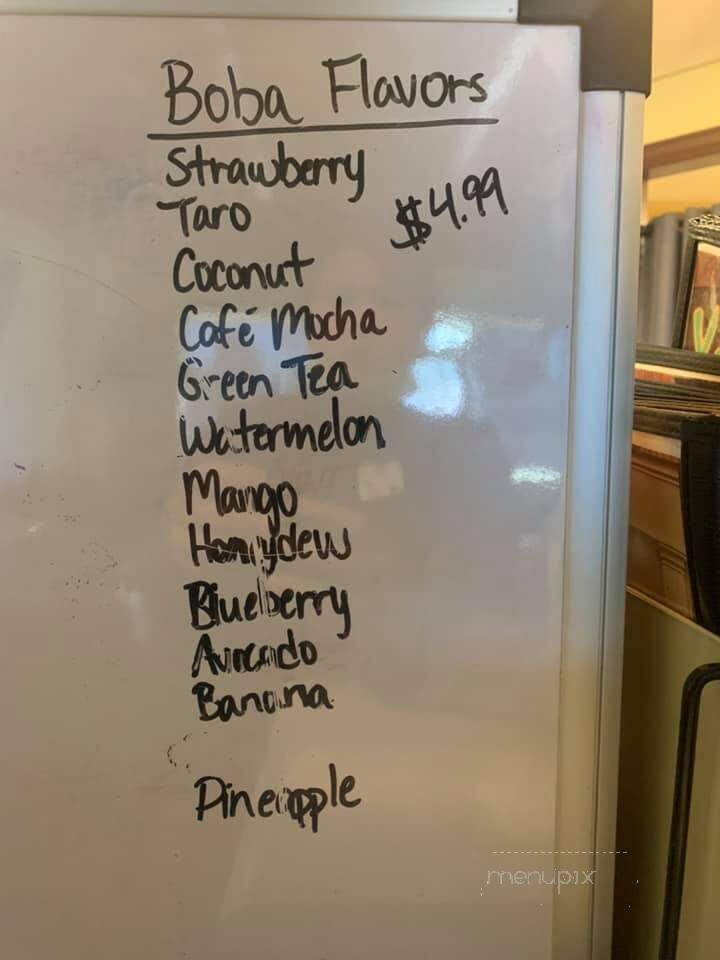 Boba Flavors
Strawberry
Taro
$4.99
Coconut
Café Mocha
Green Tea
Watermelon
Mango
Honeydew
Blueberry
Avocado
Banana
Pineapple
menupix